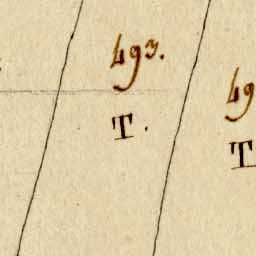 493.
T.
49
T